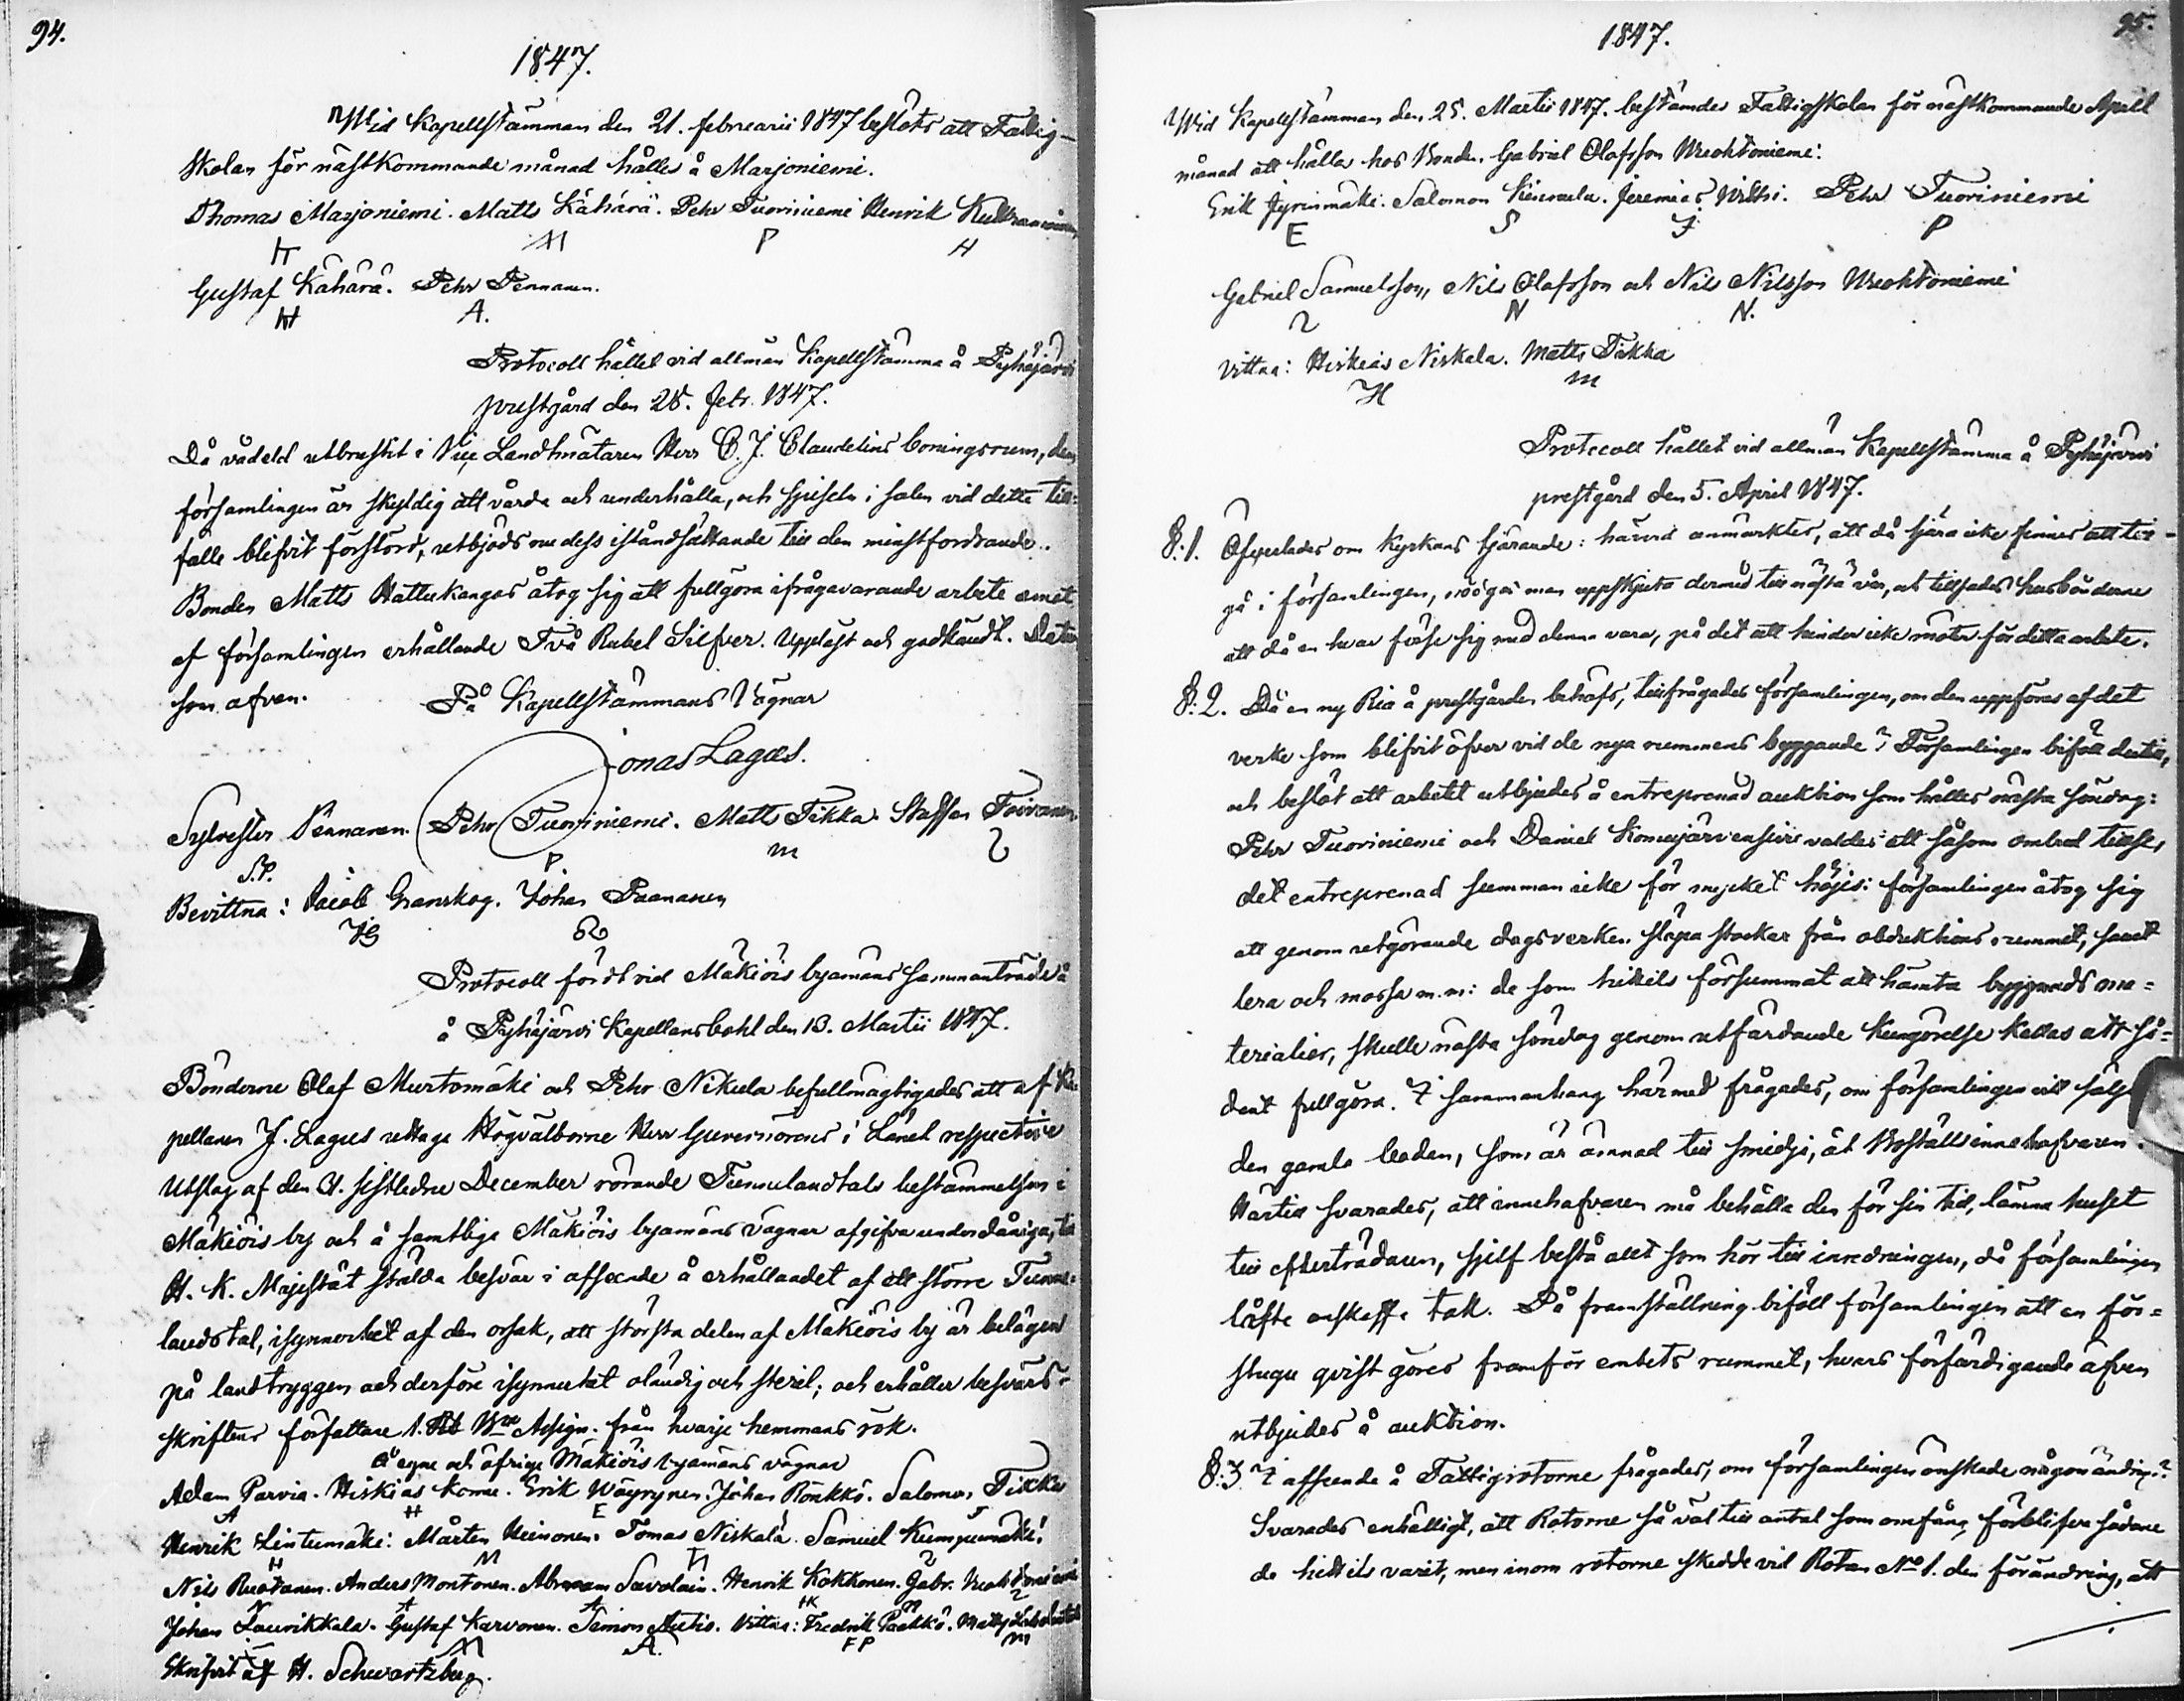 94.
1847.
Wid Kapellstämman den 21. februarii 1847 beslöts att Fattig-
skolan för nästkommande månad hålles å Marjoniemi.
Thomas Marjoniemi. Matts Kähärä. Pehr Tuoriniemi Henrik
H M P H
Gustaf Kähärä. Pehr Pennanen.
H A.
Protocoll hållet vid allmän Kapellstämma å Pyhäjärvi
prestgård den 28. febr. 1847.
Då vådeld utbrustit i Vice Landtmätaren Herr C. J. Claudelins boningsrum, dem
församlingen är skyldig att vårda och underhålla, och spiseln i salen vid detta till-
fälle blifvit förstörd, utbjöds om dess iståndsättande till den minstfordrande.
Bonden Matts Hattukangas åtog sig att fullgöra ifrågavarande arbete emot
af församlingen erhållande Två Rubel Silfver. Uppläst och godkändt. Datum
som ofvan. På Kapellstämmans Vägnar
Jonas Lagus.
Sylvester Pennanen. Pehr Tuoriniemi. Matts Tikka. Staffan Toivanen
S.P. P. m
Bevittna: Jacob Granskog. Johan Paananen
JG
Protocoll fördt vid Mäkiöis byamäns sammanträde å
å Pyhäjärvi Kapellansbohl den 13. Martii 1847.
Bönderne Olaf Murtomäki och Pehr Nikula befullmägtigades att af Ka-
pellanen J. Lagus uttaga Högvälborne Herr Guvernörens i Länet respective
Utslag af den 21. sistledne December rörande Tunnelandtals bestämmelsen i
Mäkiöis by och å samtlige Mäkiöis byamäns vägnar afgifva underdåniga, till
H. K. Majestät ställda besvär i afseende å erhållandet af ett större Tunne-
landstal, isynnerhet af den orsak, att största delen af Mäkiöis by är belägen
på landtryggen och derföre isynnerhet oländig och steril; och erhåller besvärs-
skriftens författare 1. Rb Bco Assign. från hvarje hemmans rök.
å egne och öfrige Mäkiöis byamäns vägnar
Adam Parvia. Hiskias Komu. Erik Wäyrynen. Johan Rönkkö. Salomon Tikka
A H E S
Henrik Lintumäki: Mårten Heinonen. Tomas Niskala. Samuel Kumpumäki.
H M
Nils Ruotanen. Anders Montonen. Abraham Savolain. Henrik Kokkonen. Gabr. Vuohtoniemi
N A A HK
Johan Laurikkala. Gustaf Karvonen. Simon Autio. Vittna: Fredrik Paakkö. Matts
M A. FP m
Skrifvit af H. Schwartzberg.
95.
1847.
Wid Kapellstämman den 25. Martii 1847. bestämdes Fattigskolan för nästkommande April
månad att hålla hos Bonden Gabriel Olafsson Vuohtoniemi:
Erik Jyrinmäki. Salomon Kinnula. Jeremias Pehr Tuoriniemi
E S J P
Gabriel Samuelsson, Nils Olafsson och Nils Nilsson Vuohtoniemi
N N.
Vittna: Hiskias Niskala. Matts Tikka
H m
Protocoll hållet vid allmän Kapellstämma å Pyhäjärvi
prestgård den 5. April 1847.
§. 1. Öfverlades om Kyrkans tjärande: härvid anmärktes, att då tjära icke finnes att till-
gå i församlingen, nödgas man uppskjuta dermed till nästa vår, och tillsades husbönderne
att då en hvar förse sig med denna vara, på det att hinder icke möter för detta arbete.
§. 2. Då en ny Ria å prestgården behöfs, tillfrågades församlingen, om den uppföres af det
verke som blifvit öfver vid de nya rummens byggande? Församlingen biföll dertill,
och beslöt att arbetet utbjudes å entreprenad auktion som hålles nästa söndag:
Pehr Tuoriniemi och Daniel Komujärvensivu valdes att såsom ombud tillse,
det entreprenad summan icke för mycket höjes: församlingen åtog sig
att genom utgörande dagsverken släpa stockar från obduktions rummet, samt
lera och mossa m.m: de som hittils försummat att hämta byggnads ma-
terialier, skulle nästa söndag genom utfärdande kungörelse kallas att så-
dant fullgöra. I sammanhang härmed frågades, om församlingen vill sälja
den gamla boden, som är ämnad till smidja, åt Boställsinnehafvaren.
Härtill svarades, att innehafvaren må behålla den för sin tid, lämna huset
till efterträdaren, sjelf bestå allt som hör till inredningen, då församlingen
låfte anskaffa tak. På framställning biföll församlingen att en för-
stugu qvist göres framför embets rummet, hvars förfärdigande äfven
utbjudes å auktion.
§. 3. I afseende å Fattigrotorne frågades, om församlingen önskade någon ändring?
Svarades enhälligt, att Rotorne så väl till antal som omfång förblifva sådane
de hittils varit, men inom rotorne skedde vid Rotan No 1. den förändring, att